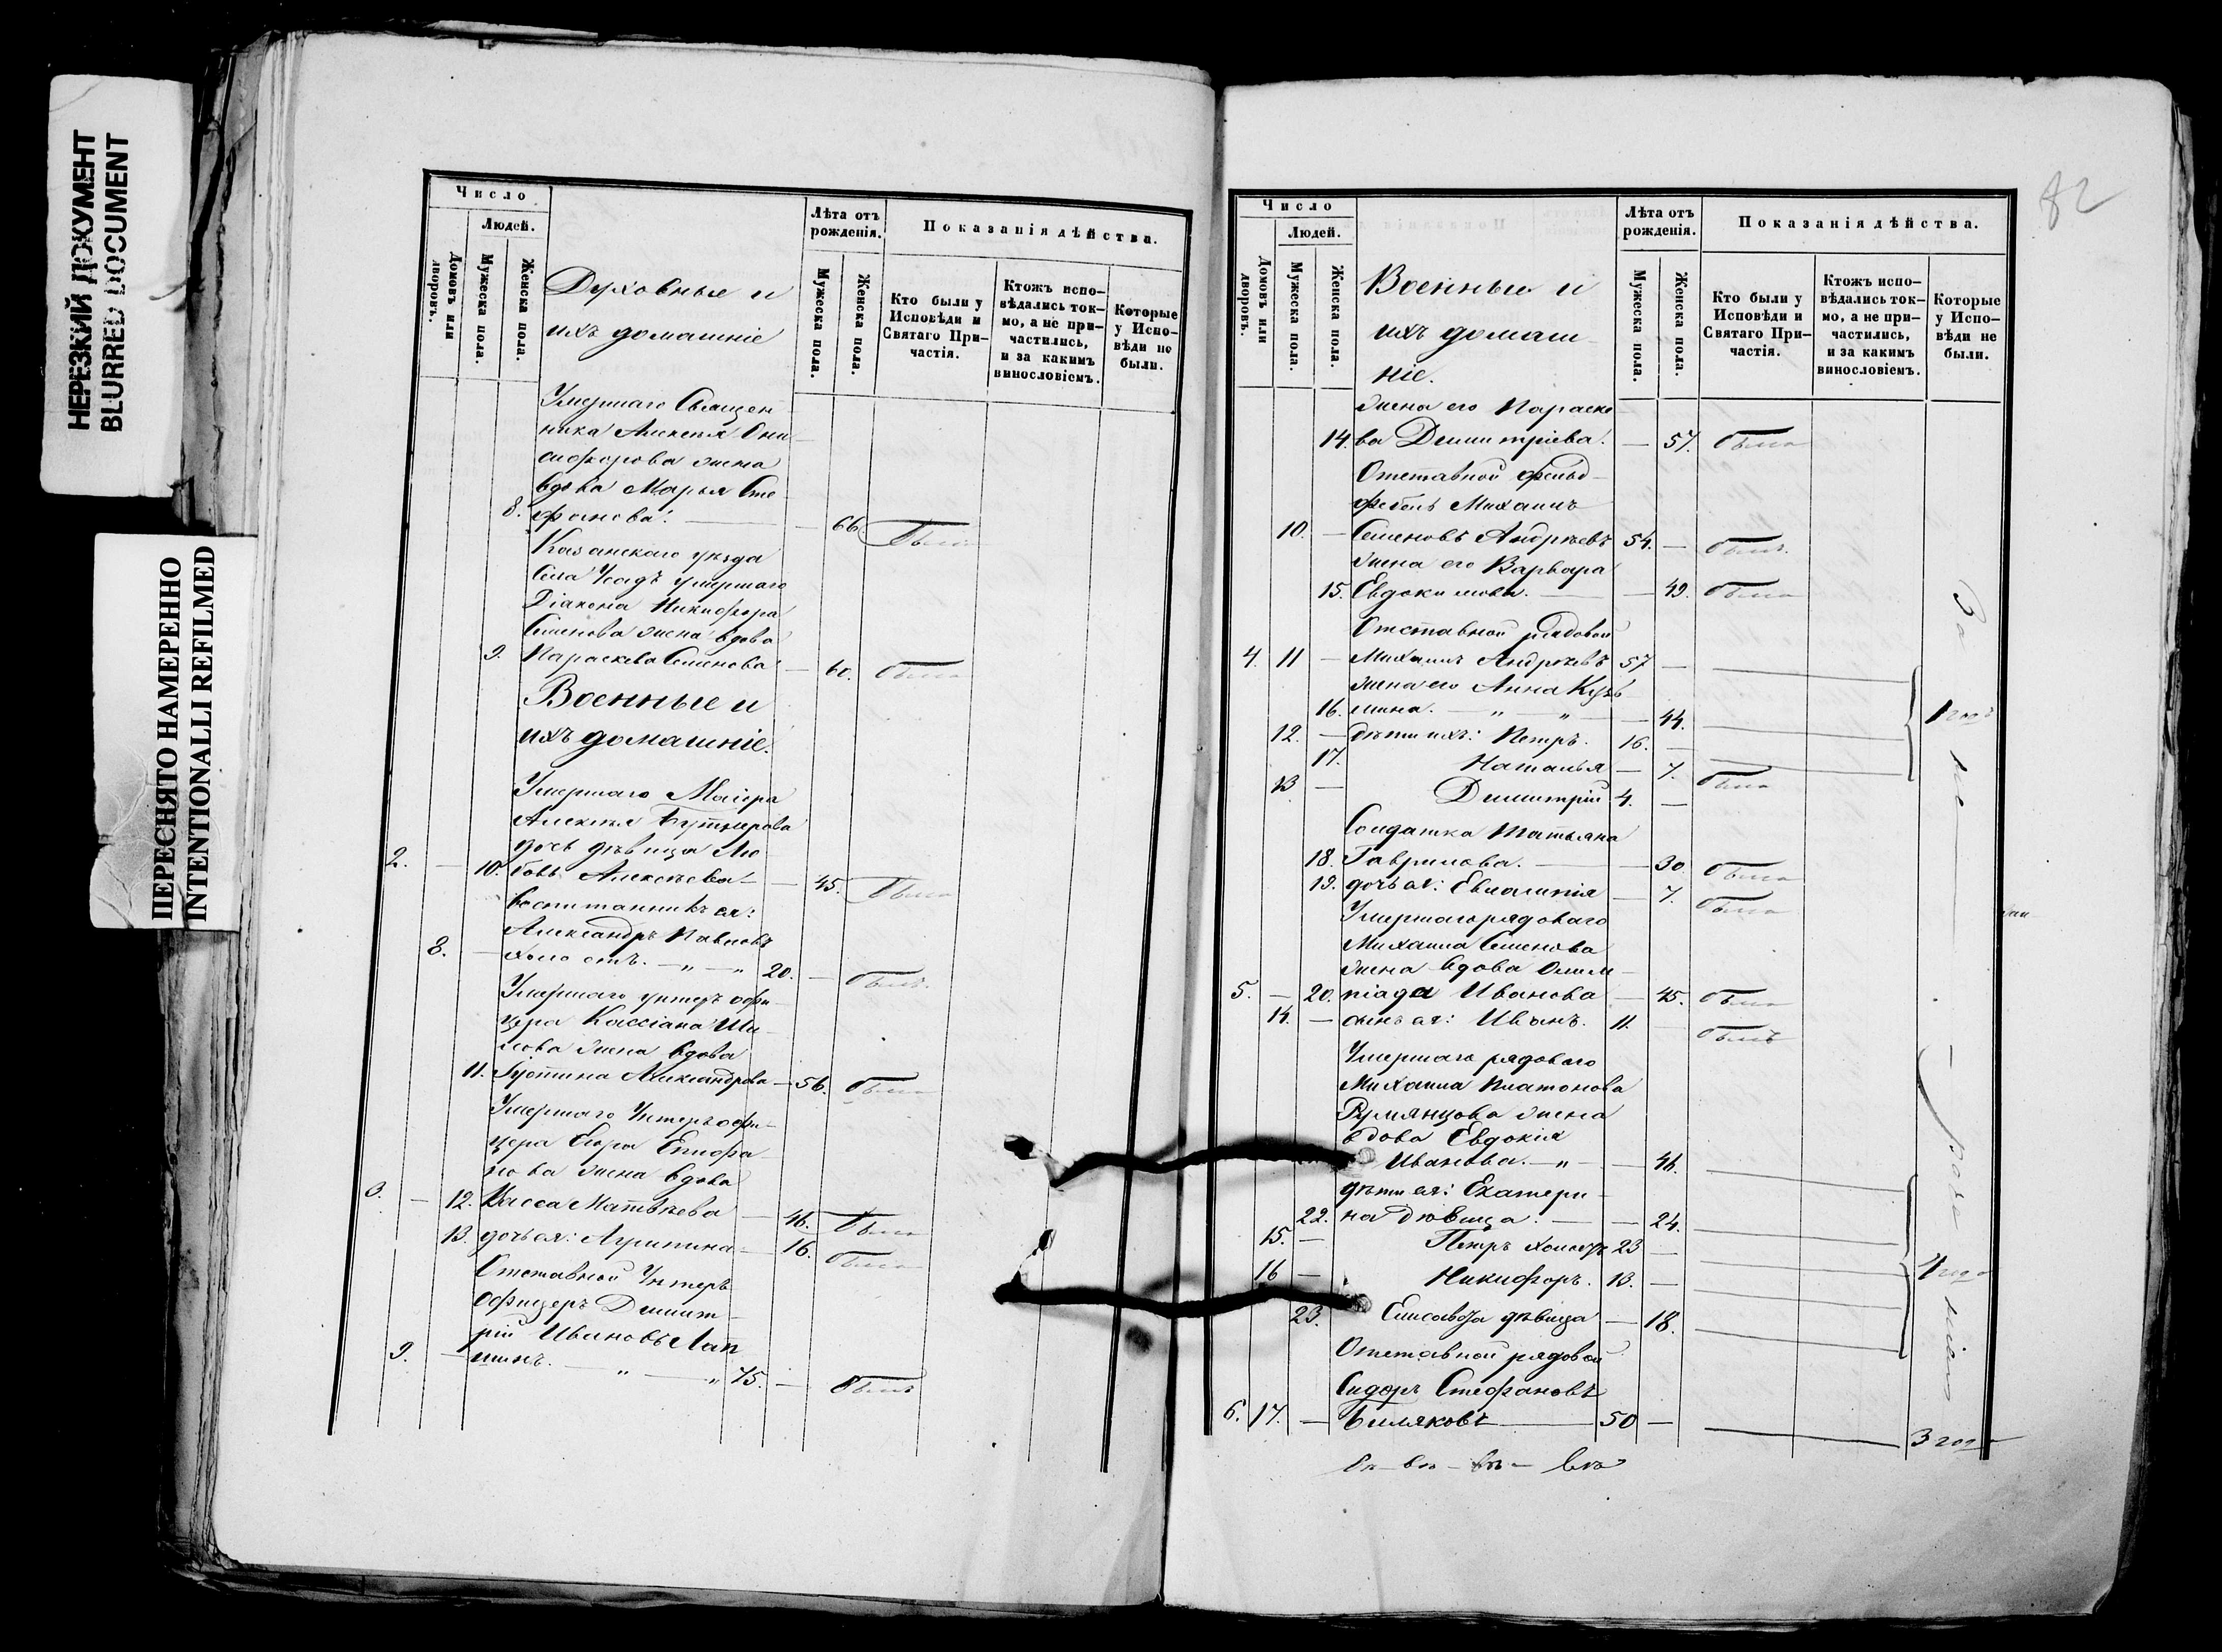 НЕРЕЗКИЙ ДОКУМЕНТ
BLURRED DOCUMENT
ПЕРЕСНЯТО НАМЕРЕННО
INTENTIONALLI REFILMED
Число
Людей.
Домовъ или дворовъ.
Мужеска пола.
Женска пола.
Духовные и
ихъ домашніе
Лѣта отъ рожденія.
Мужеска пола.
Женска пола.
Показанія дѣйства.
Кто были у Исповѣди и Святаго Причастія.
Ктожъ исповѣдались токмо, а не причастились, и за какимъ винословіемъ.
Которые у Исповѣди не были.
Умершаго Священ-
ника Алексея Они-
сифорова жена
вдова Марья Сте-
8. фанова. — 66. была
Казанскаго уѣзда
села Усадъ умершаго
Діакона Никифора
Семенова жена вдова
9. Параскева Семенова — 60. была
Военные и
ихъ домашніе.
Умершаго Маіора
Алексея Бутлерова
дочь дѣвица Лю-
2. — 10. бовь Алексѣева — 45. была
воспитанникъ ея:
Александръ Павловъ
8. — холостъ. — „ — „ 20. — былъ.
Умершаго унтеръ офи-
цера Кассіана Ши-
лова жена вдова
11. Іустина Александрова — 56. была
Умершаго Унтеръ офи-
цера Егора Епифа-
нова жена вдова
3. — 12. Васса Матвѣева — 46. была
13. дочь ея: Агрипина — 16. была
Отставной Унтеръ
Офицеръ Димит-
рій Ивановъ Лап
9. — шинъ. — „ — „ 75. — былъ
82
Число
Людей.
Домовъ или дворовъ.
Мужеска пола.
Женска пола.
Военные и
ихъ домаш-
ніе.
Лѣта отъ рожденія.
Мужеска пола.
Женска пола.
Показанія дѣйства.
Кто были у Исповѣди и Святаго Причастія.
Ктожъ исповѣдались токмо, а не причастились, и за какимъ винословіемъ.
Которые у Исповѣди не были.
Жена его Параске
14. ва Димитріева. — 57. была
Отставной фельд-
фебель Михаилъ
10. — Семеновъ Андреевъ 54. — былъ.
Жена его Варвара
15. Евдокимова. — 49. была
Отставной рядовой
4. 11 — Михаилъ Андреевъ 57 —
жена его Анна Кузь
16. мина. — „ — „ — 44. 1 годъ
12. — дѣти ихъ: Петръ. 16. —
17. Наталья — 7. была
13 — Димитрій 4. —
Солдатка Татьяна
18. Гаврилова. — 30 была
19. дочь ея: Евлампія — 7. была
Умершаго рядоваго
Михаила Семенова
жена вдова Олим-
5. — 20. піада Иванова — 45. была
14. — сынъ ея: Иванъ. 11. — былъ
Умершаго рядоваго
Михаила Платонова
Румянцова жена
вдова Евдокія
Иванова. — „ — 46.
дѣти ея: Екатери-
22. на дѣвица. — 24.
15. — Петръ холостъ 23 —
16 — Никифоръ. 13. — 4 года
23. Елисавета дѣвица — 18.
Отставной рядовой
Сидоръ Стефановъ
6. 17. — Биляковъ — 50 — 3 года